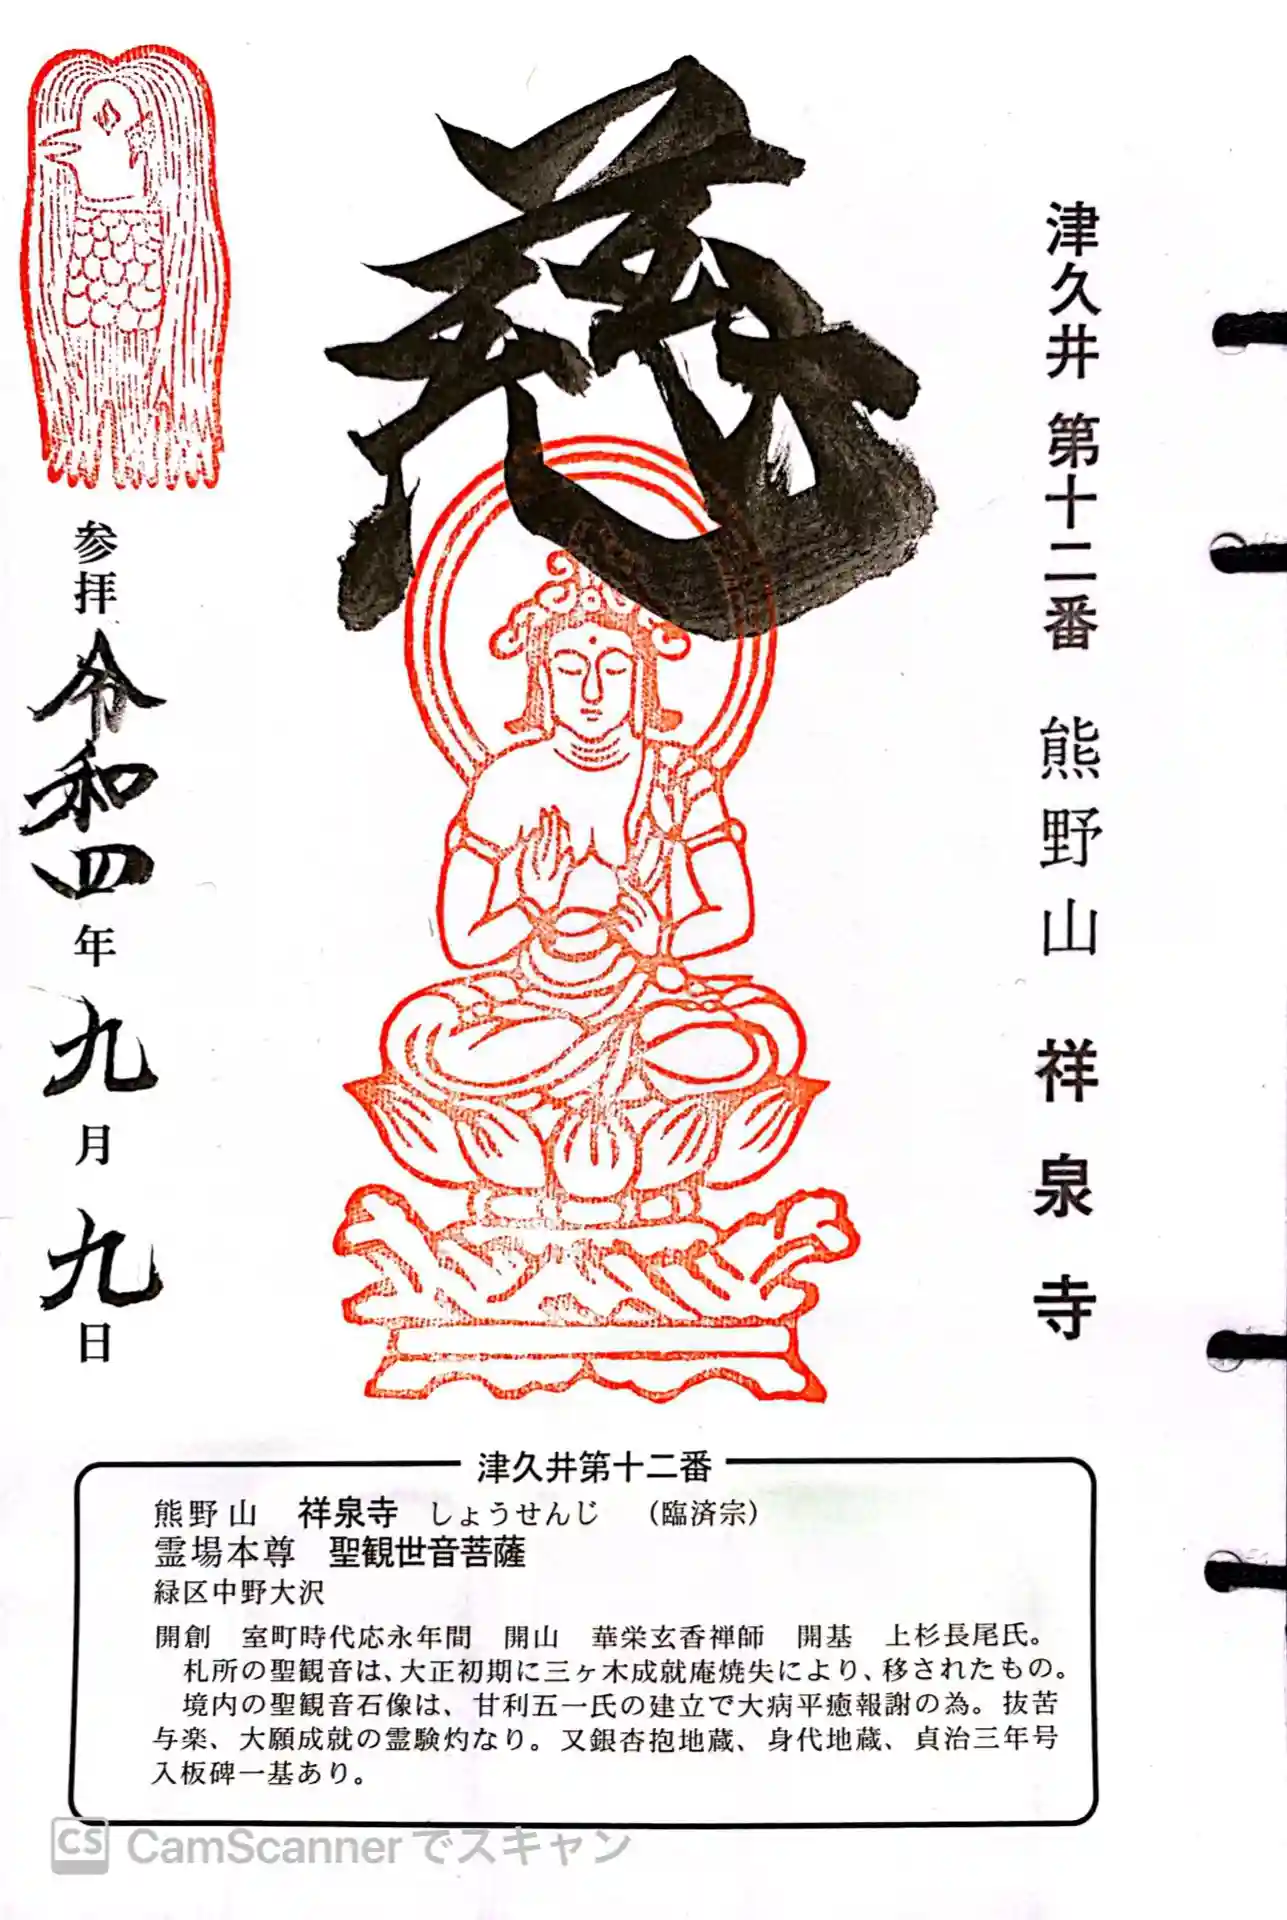 津久井 第十二番 熊野山 祥泉寺
慈
参拝 令和四年 九月 九日
津久井第十二番
熊野山 祥泉寺 しょうせんじ (臨済宗)
霊場本尊 聖観世音菩薩
緑区中野大沢
開創 室町時代応永年間 開山 華栄玄香禅師 開基 上杉長尾氏。
札所の聖観音は、大正初期に三ヶ木成就庵焼失により、移されたもの。
境内の聖観音石像は、甘利五一氏の建立で大病平癒報謝の為。抜苦
与楽、大願成就の霊験灼なり。又銀杏抱地蔵、身代地蔵、貞治三年号
入板碑一基あり。
CS CamScannerでスキャン